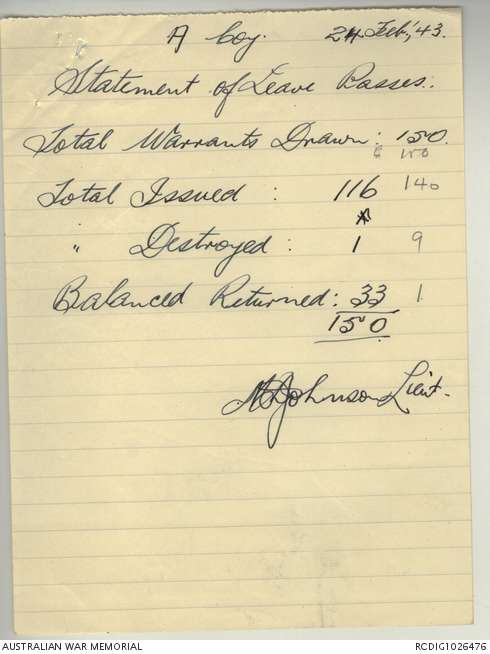 A Coy. 24 Feb', 43.
Statement of Leave Passes:
Total Warrants Drawn: 150.
150
Total Issued : 116 140
" Destroyed : 1 9
Balanced Returned: 33 1
150
Johnson Lieut.
AUSTRALIAN WAR MEMORIAL RCDIG1026476